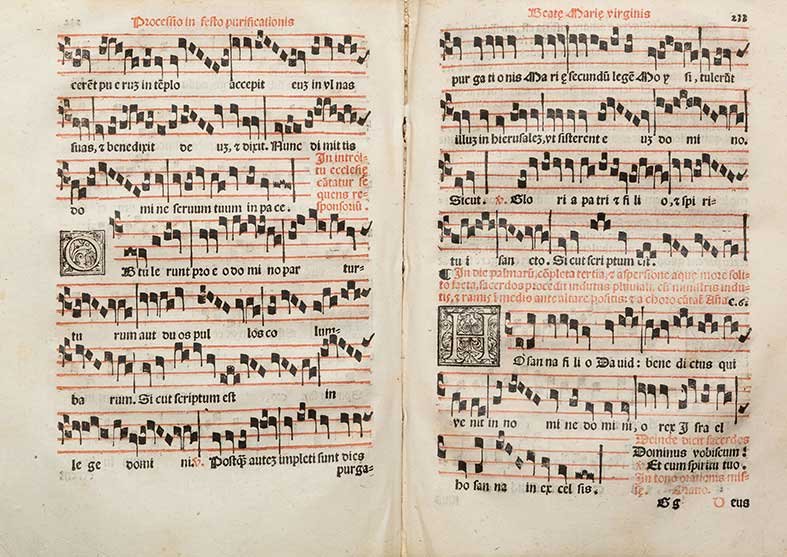 Processio in festo purificationis
cerēt pu e ruꝫ in tēplo accepit euꝫ in vl nas
suas, ⁊ benedixit de uꝫ, ⁊ dixit. Nunc di mit tis
do mi ne seruum tuum in pa ce.
In introi-
tu ecclesię
cātatur se
quens re-
sponsoriū.
O B tu le runt pro e o do mi no par tur-
tu rum aut du os pul los co lum-
ba rum. Si cut scriptum est in
le ge domi ni. ℣. Postq̄ꝫ auteꝫ impleti sunt dies
purga-
Beatę Marię virginis
233
pur ga ti o nis Ma ri ę secundū legē Mo y si, tulerūt
illuꝫ in hierusaleꝫ, vt sisterent e uꝫ do mi no.
Sicut. ℣. Glo ri a pa tri ⁊ fi li o, ⁊ spi ri-
tu i san cto. Si cut scri ptum est.
¶ In die palmarū, cōpleta tertia, ⁊ aspersione aque more soli-
to facta, sacerdos procedit indutus pluuiali, cū ministris indu-
tis, ⁊ ramis ī medio ante altare positis: ⁊ a choro cātať Añaꝫ
c.6.
H O san na fi li o Da uid: bene di ctus qui
ve nit in no mi ne do mi ni, o rex I sra el
ho san na in ex cel sis.
Deinde dicit sacerdos
Dominus vobiscum:
℟. Et cum spiritu tuo.
In tono orationis mis-
sę. Oratio.
G g D eus